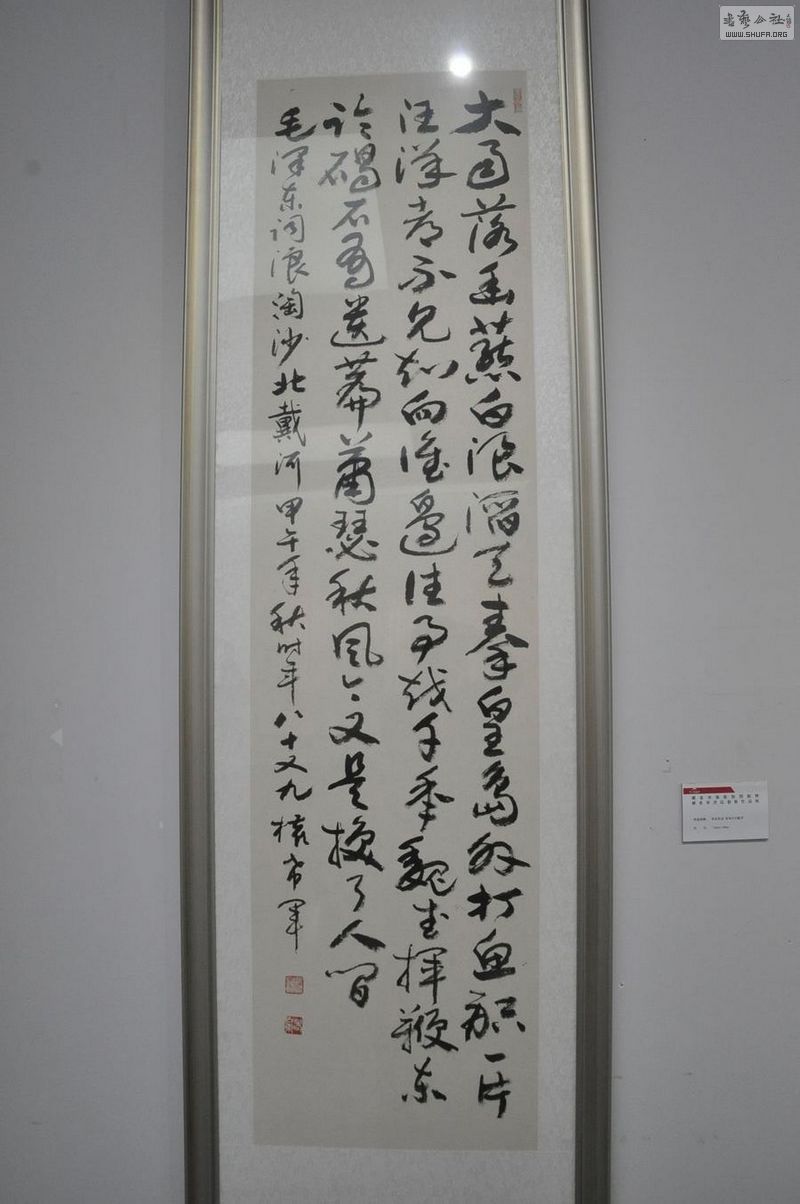 書藝公社
WWW.SHUFA.ORG
大雨落幽燕白浪滔天秦皇島外打魚船一片
汪洋都不見知向誰邊往事越千年魏武揮鞭東
臨碣石有遺篇蕭瑟秋風今又是換了人間
毛泽东词浪淘沙北戴河甲午年秋时年八十又九希军